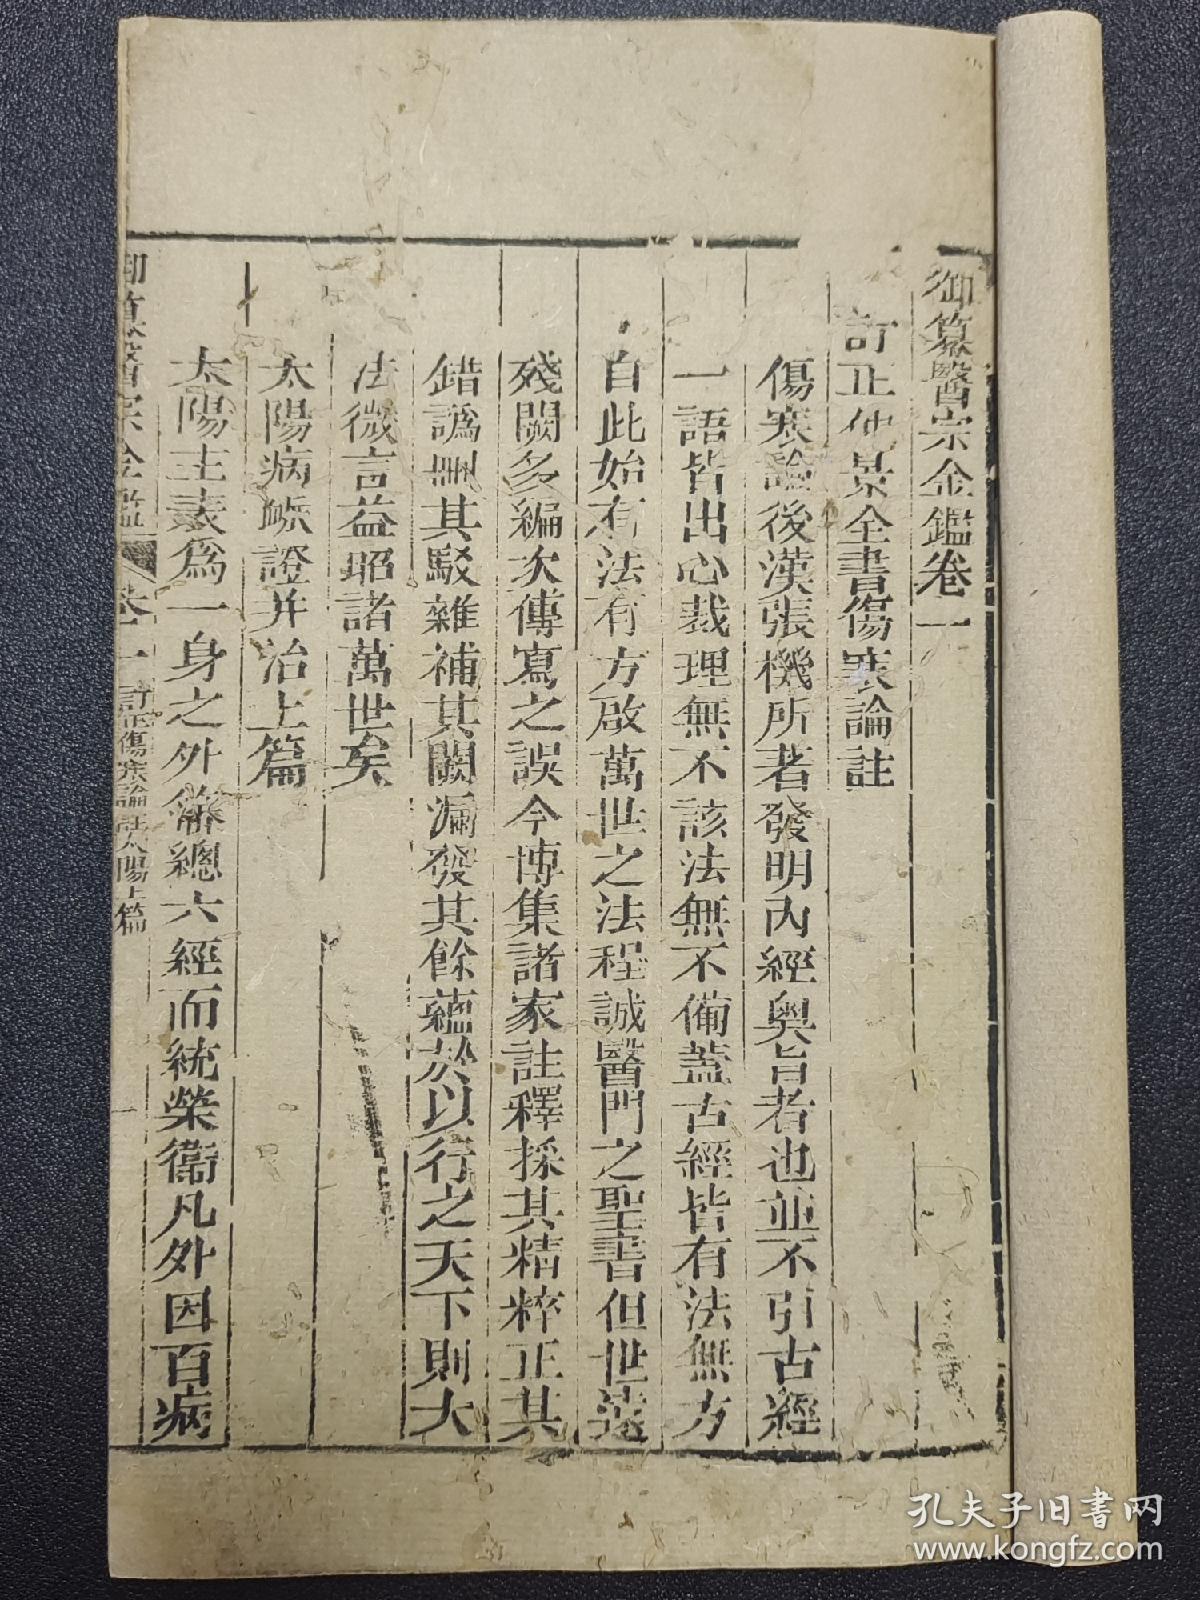 御纂醫宗金鑑卷一
訂正仲景全書傷寒論註
傷寒論後漢張機所著發明內經奧旨者也並不引古經
一語皆出心裁理無不該法無不備蓋古經皆有法無方
自此始有法有方啟萬世之法程誠醫門之聖書但世遠
殘闕多編次傳寫之誤今博集諸家註釋採其精粹正其
錯譌刪其駁雜補其闕漏發其餘蘊於以行之天下則大
法微言益昭諸萬世矣
太陽病脈證并治上篇
太陽主表為一身之外藩總六經而統榮衛凡外因百病
御纂醫宗金鑑 卷一 訂正傷寒論註太陽上篇 一
孔夫子旧书网
www.kongfz.com